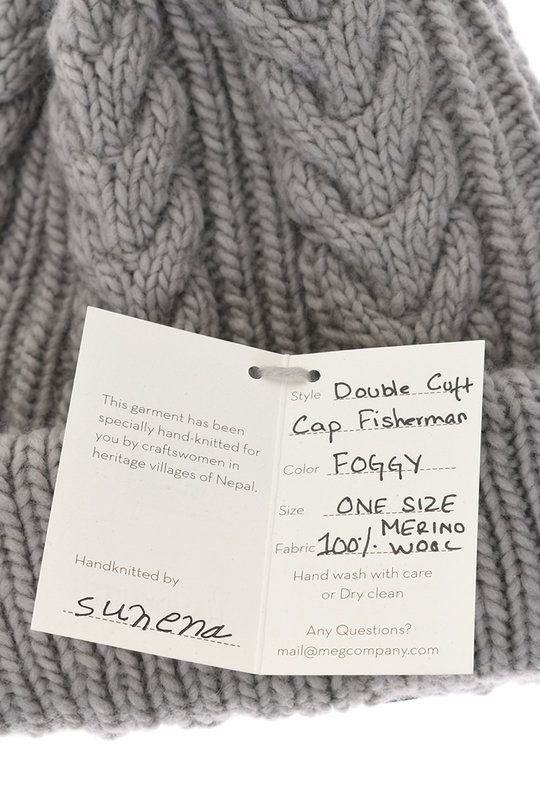 This garment has been
specially hand-knitted for
you by craftswomen in
heritage villages of Nepal.
Handknitted by
sunena
Style Double Cuft
Cap Fisherman
Color FOGGY
Size ONE SIZE
Fabric 100% MERINO
WOOL
Hand wash with care
or Dry clean
Any Questions?
mail@megcompany.com